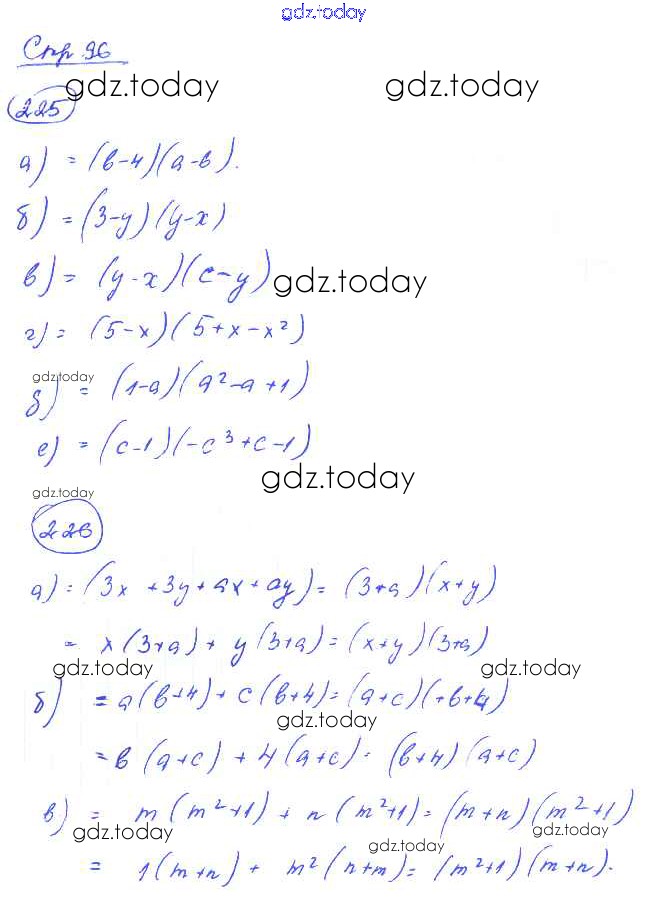 gdz.today
Стр 96
gdz.today gdz.today
225
а) = (b-4)(a-b).
б) = (3-y)(y-x)
в) = (y-x)(c-y)
gdz.today
г) = (5-x)(5+x-x²)
gdz.today
д) = (1-a)(a²-a+1)
е) = (c-1)(-c³+c-1)
gdz.today
gdz.today
226
а) = (3x+3y+ax+ay) = (3+a)(x+y)
= x(3+a) + y(3+a) = (x+y)(3+a)
gdz.today gdz.today
б) = a(b+4) + c(b+4) = (a+c)(+b+4)
gdz.today
= b(a+c) + 4(a+c) = (b+4)(a+c)
в) = m(m²+1) + n(m²+1) = (m+n)(m²+1)
gdz.today gdz.today
gdz.today
= 1(m+n) + m²(n+m) = (m²+1)(m+n).